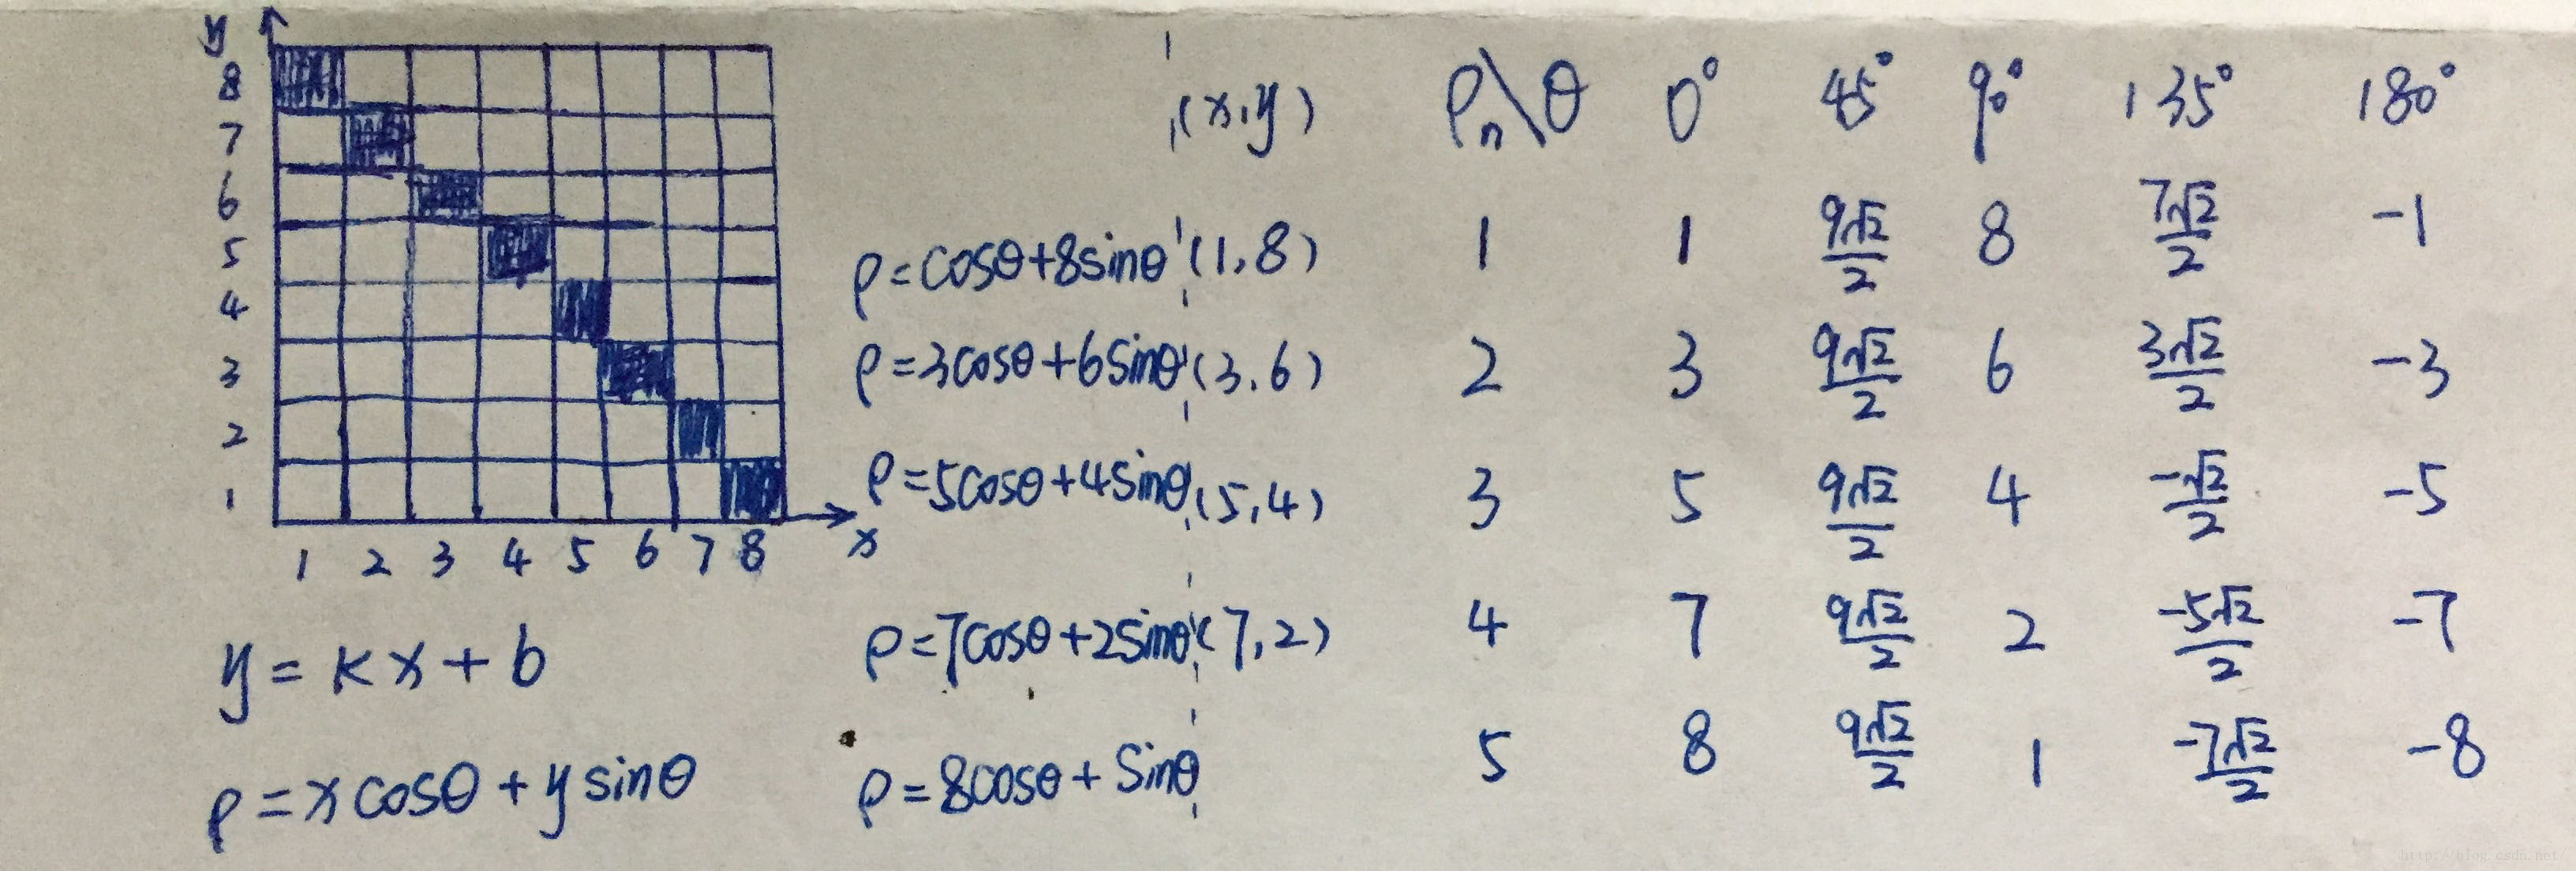 y
8
7
6
5
4
3
2
1
1 2 3 4 5 6 7 8 x
y = kx + b
ρ = x cosθ + y sinθ
(x,y) ρn\θ 0° 45° 90° 135° 180°
ρ=cosθ+8sinθ (1,8) 1 1 9√2/2 8 7√2/2 -1
ρ=3cosθ+6sinθ (3,6) 2 3 9√2/2 6 3√2/2 -3
ρ=5cosθ+4sinθ (5,4) 3 5 9√2/2 4 -√2/2 -5
ρ=7cosθ+2sinθ (7,2) 4 7 9√2/2 2 -5√2/2 -7
ρ=8cosθ+sinθ 5 8 9√2/2 1 -7√2/2 -8
http://blog.csdn.net/